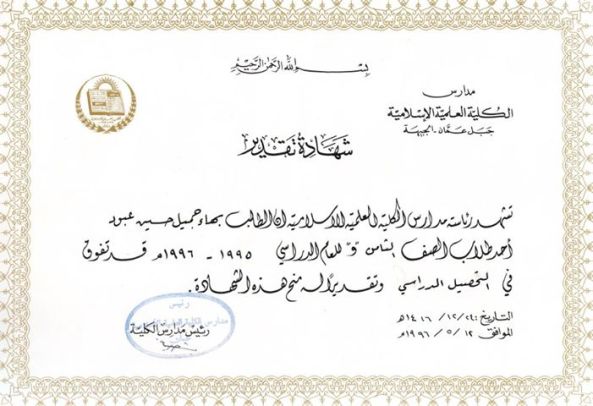 بسم الله الرحمن الرحيم
مدارس
الكلية العلمية الإسلامية
جبل عمّان - الجبيهة
شَهَادَة تَقدير
تشهد رئاسة مدارس الكلية العلمية الاسلامية ان الطالب بهاء جميل حسين عبود
أحد طلاب الصف الثامن "و" للعام الدراسي ١٩٩٥ - ١٩٩٦م قد تفوق
في التحصيل الدراسي وتقديرًا له منح هذه الشهادة.
التاريخ: ٢٤/ ١٢/ ١٤١٦هـ
الموافق ١٢/ ٥/ ١٩٩٦م
رئيس
رئيس مدارس الكلية